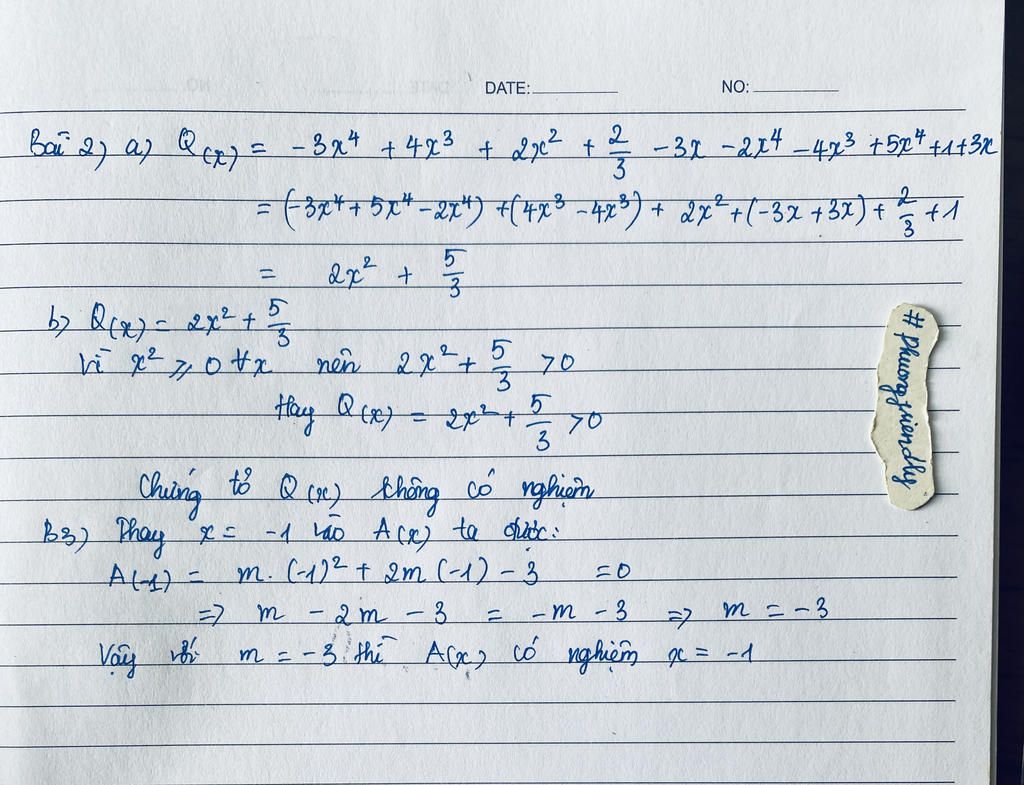 DATE: NO:
Bài 2) a) Q(x) = -3x⁴ + 4x³ + 2x² + 2/3 - 3x - 2x⁴ - 4x³ + 5x⁴ + 1 + 3x
= (-3x⁴ + 5x⁴ - 2x⁴) + (4x³ - 4x³) + 2x² + (-3x + 3x) + 2/3 + 1
= 2x² + 5/3
b) Q(x) = 2x² + 5/3
Vì x² ⩾ 0 ∀x nên 2x² + 5/3 > 0
Hay Q(x) = 2x² + 5/3 > 0
Chứng tỏ Q(x) không có nghiệm
B3) Thay x = -1 vào A(x) ta được:
A(-1) = m. (-1)² + 2m (-1) - 3 = 0
=> m - 2m - 3 = -m - 3 => m = -3
Vậy với m = -3 thì A(x) có nghiệm x = -1
#phuongfriendly